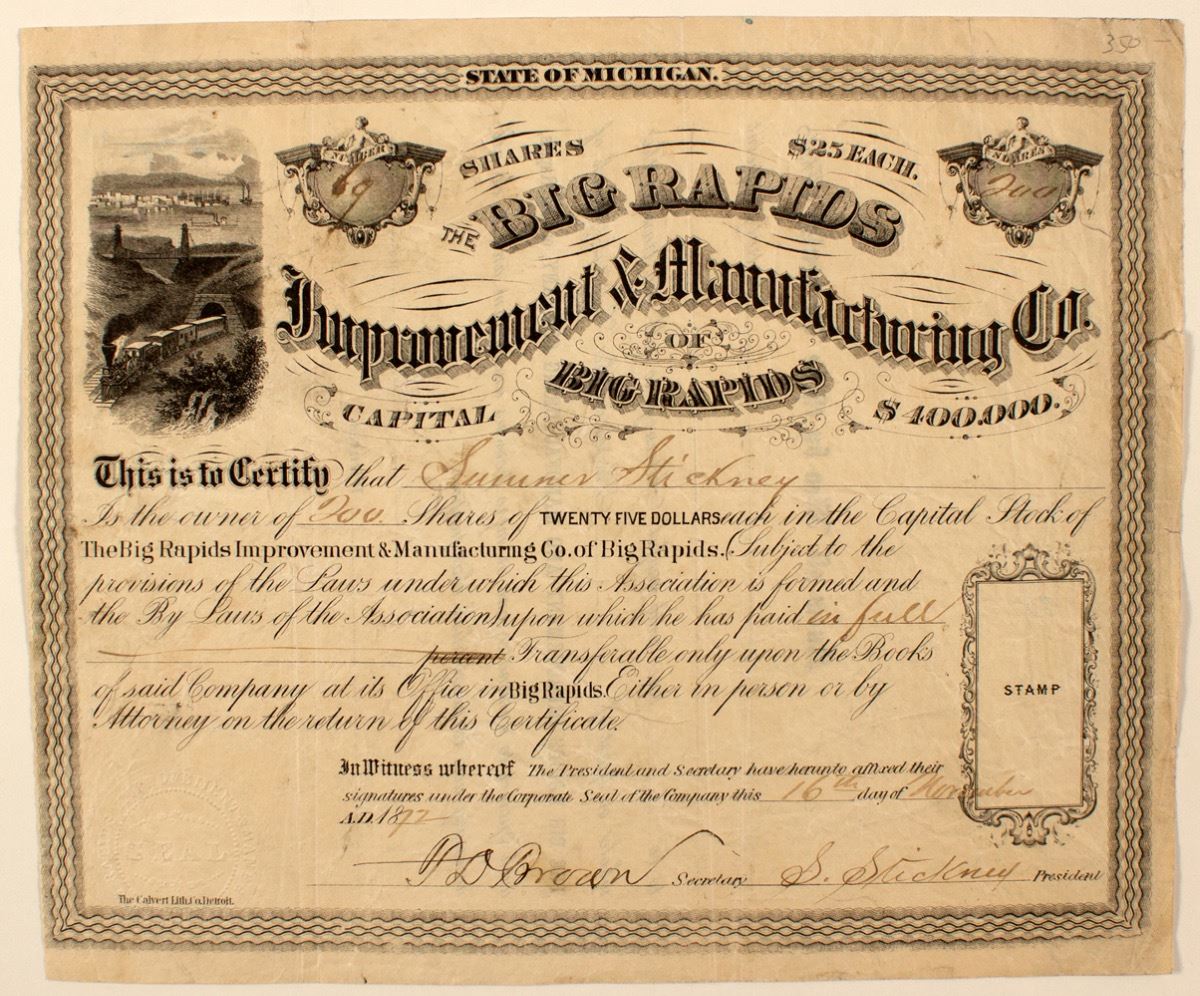 350
STATE OF MICHIGAN.
NUMBER
69
SHARES
$25 EACH.
SHARES
200
THE BIG RAPIDS
Improvement & Manufacturing Co.
OF
BIG RAPIDS
CAPITAL
$400.000.
This is to Certify that Sumner Stickney
Is the owner of 200. Shares of TWENTY FIVE DOLLARS each in the Capital Stock of
The Big Rapids Improvement & Manufacturing Co. of Big Rapids. (Subject to the
provisions of the Laws under which this Association is formed and
the By Laws of the Association) upon which he has paid in full
percent Transferable only upon the Books
of said Company at its Office in Big Rapids. Either in person or by
Attorney on the return of this Certificate.
STAMP
In Witness whereof The President and Secretary have herunto affixed their
signatures under the Corporate Seal of the Company this 16th day of November
A.D. 1872
P D Brown Secretary S. Stickney President
SEAL
The Calvert Lith. Co. Detroit.